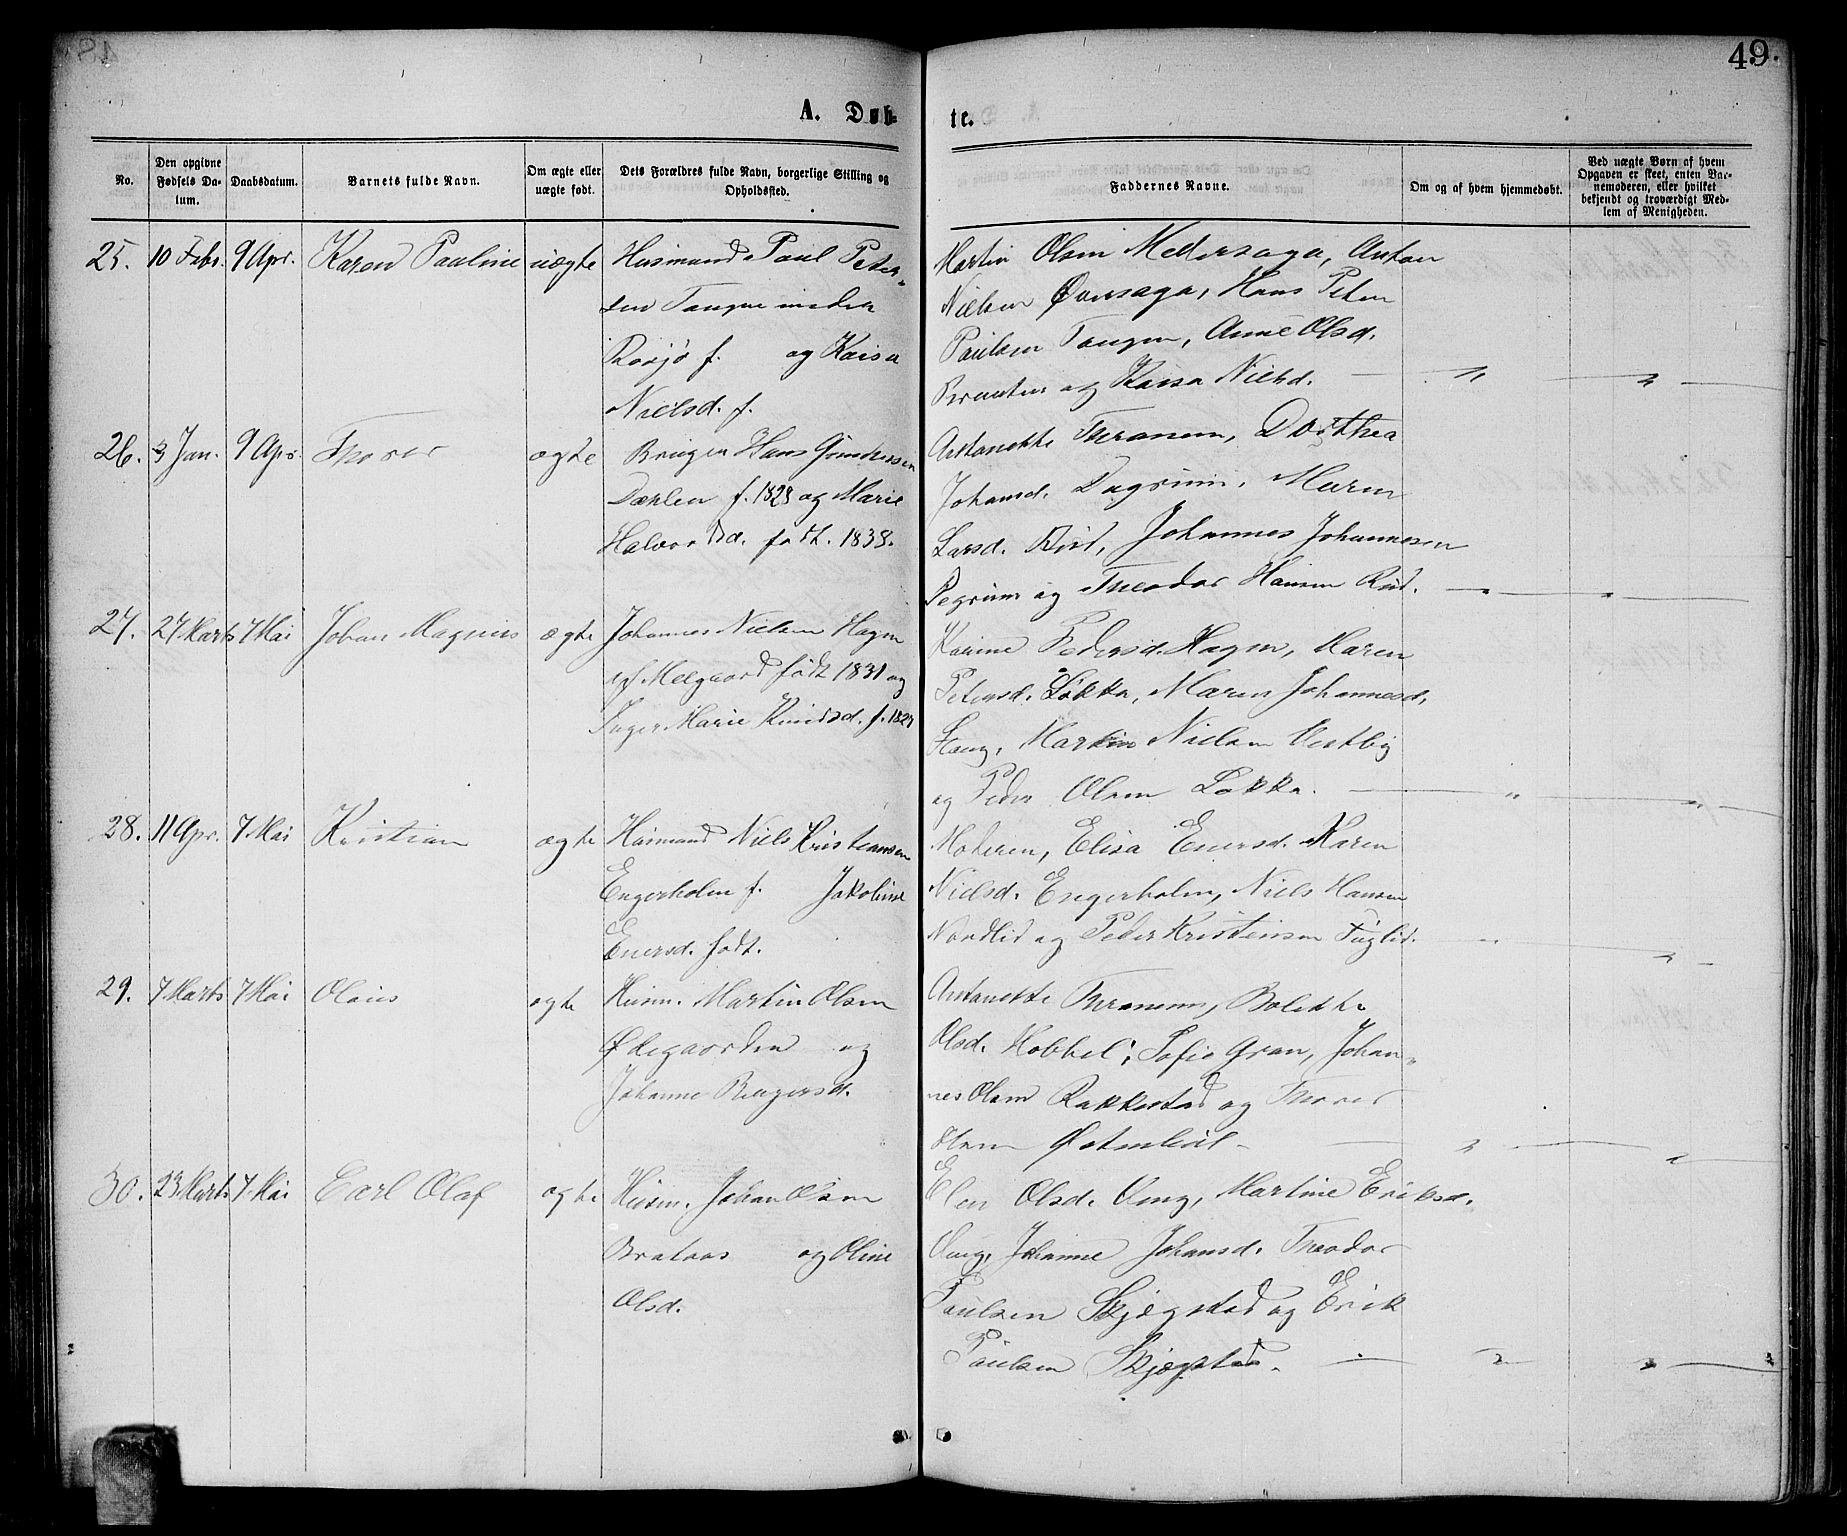 49.
A. Døb-
te.
No.
Den opgivne Fødsels Da-tum.
Daabsdatum.
Barnets fulde Navn.
Om ægte eller uægte født.
Dets Forældres fulde Navn, borgerlige Stilling og Opholdssted.
Faddernes Navne.
Om og af hvem hjemmedøbt.
Ved uægte Børn af hvem Opgaven er skeet, enten Bar-nemoderen, eller hvilket bekjendt og troværdigt Med-lem af Menigheden.
25. 10 Febr. 9 Apr. Karen Pauline uægte Husmand Paul Peder-
sen Tangen
f. og Kaisa
Nielsd. f.
Martin Olsen Mellersaga, Anton
Nielsen Øversaga, Hans Peter
Paulsen Tangen, Anne Olsd.
og Kaisa Nielsd. — " — " —
26. 3 Jan. 9 Apr. Thorer ægte Bruger Hans Gundersen
Dæhlen f. 1828 og Marie
Halvorsd. født. 1838.
Antonette Thranem, Dorthea
Johansd. Dægrum, Maren
Larsd. Rud, Johannes Johannesen
Degrum og Theodor Hansen Rud. — " — " —
27. 27 Marts 7 Mai Johan Magnus ægte Johannes Nielsen Hagen
af Melgaard født 1831 og
Inger Marie Knudsd. f. 1829
Karine Pedersd. Hagen, Karen
Petersd. Løkka, Maren Johannesd.
Haug, Martin Nielsen Vestby
og Peder Olsen Løkka. — " — " —
28. 11 Apr. 7 Mai Kristian ægte Husmand Niels Kristiansen
Engerholm f. Jakobine
Enersd. født.
Moderen, Elisa Enersd. Karen
Nielsd. Engerholm, Niels Hansen
Nordlid og Peder Kristensen Fuglid. — " — " —
29. 7 Marts 7 Mai Olaus ægte Husm. Martin Olsen
Ødegaarden og
Johanne Bergersd.
Antonette Thranem, Bolette
Olsd. Hobbel, Sofie Gran, Johan-
nes Olsen Rakkestad og Thorer
Olsen — " — " —
30. 23 Marts 7 Mai Carl Olaf ægte Husm. Johan Olsen
Brataas og Oline
Olsd.
Elen Olsd. Aug, Martine Eriksd.
Aug, Johanne Johansd. Theodor
Paulsen Skjegstad og Erik
Paulsen Skjegstad. — " — " —